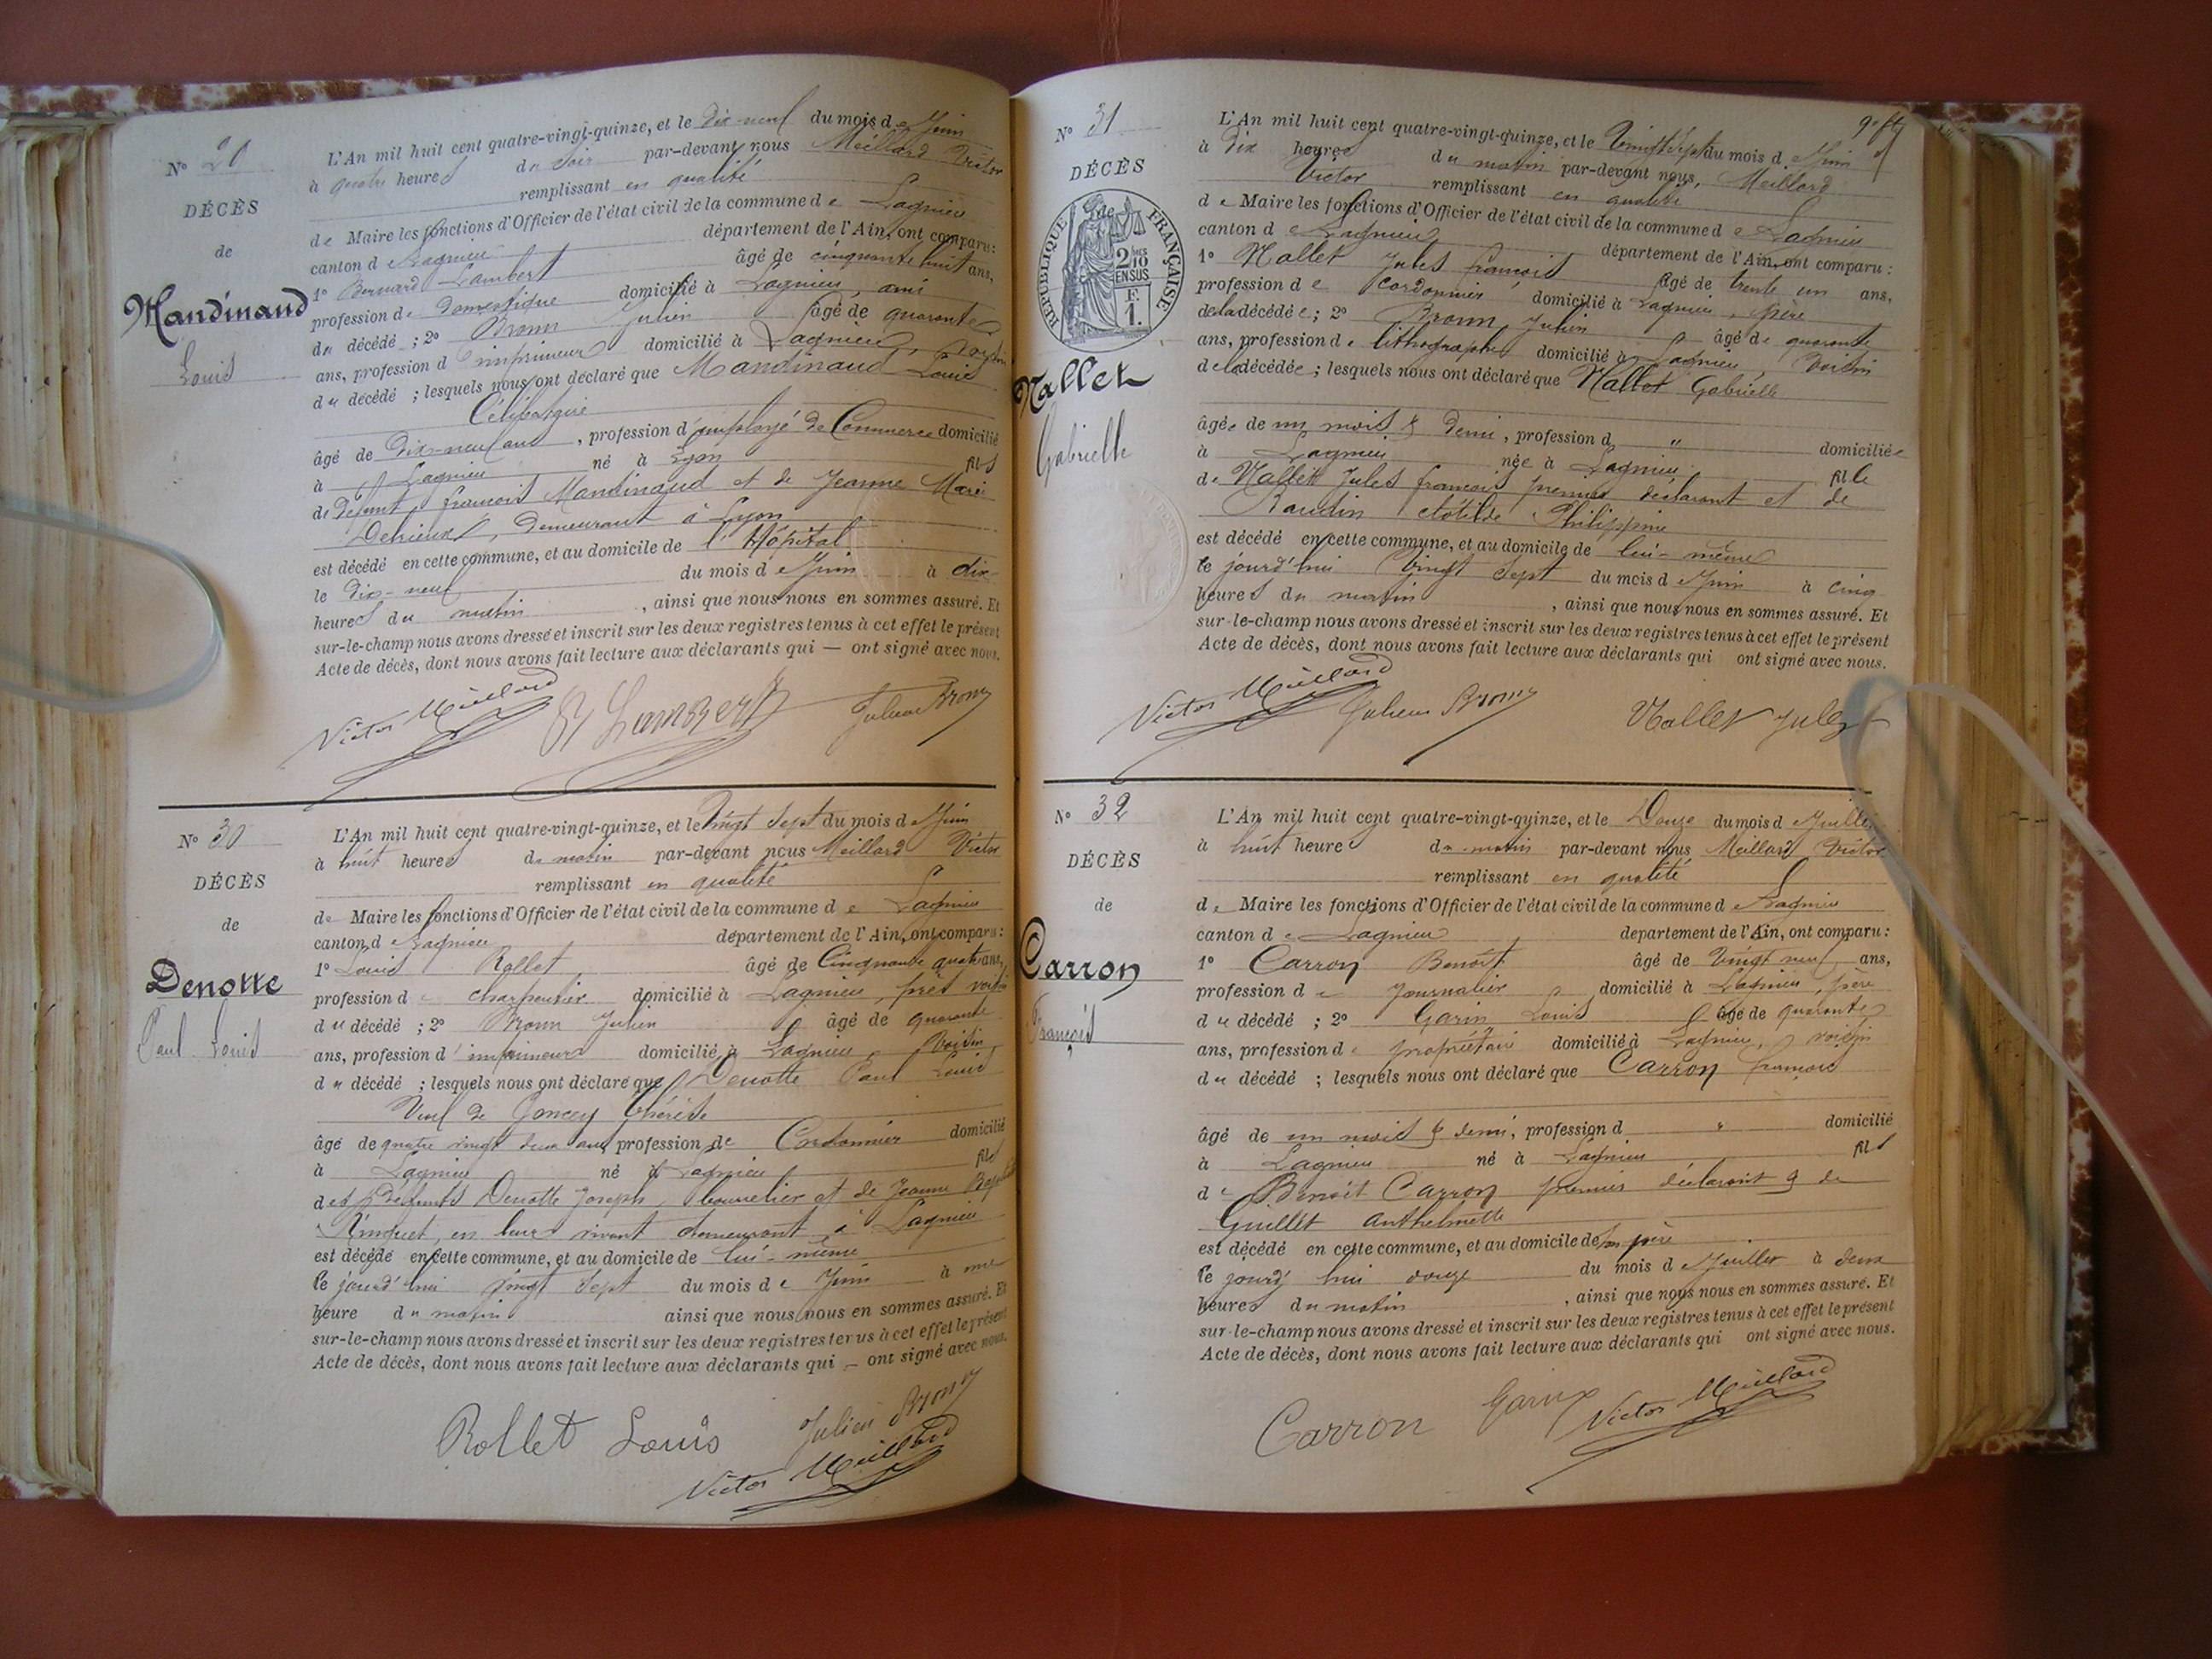 N° 20
DÉCÈS
de
Mandinaud
Louis
L'An mil huit cent quatre-vingt-quinze, et le Dix-neuf du mois de Juin
à quatre heures du soir par-devant nous Meillard Victor
remplissant en qualité
de Maire les fonctions d'Officier de l'état civil de la commune de Lagnieu
canton de Lagnieu département de l'Ain, ont comparu :
1° Bernard Lambert âgé de cinquante huit ans,
profession de Domestique domicilié à Lagnieu, ami
du décédé ; 2° Bronn Julien âgé de quarante
ans, profession d'imprimeur domicilié à Lagnieu, voisin
du décédé ; lesquels nous ont déclaré que Mandinaud Louis
Célibataire
âgé de Dix-neuf ans, profession d'employé de Commerce domicilié
à Lagnieu né à Lyon fils
de Défunt françois Mandinaud et de Jeanne Marie
demeurant à Lyon
est décédé en cette commune, et au domicile de l'Hôpital
le Dix-neuf du mois de Juin à dix
heures du matin, ainsi que nous nous en sommes assuré. Et
sur-le-champ nous avons dressé et inscrit sur les deux registres tenus à cet effet le présent
Acte de décès, dont nous avons fait lecture aux déclarants qui — ont signé avec nous.
Victor Meillard Bd Lambert Julien Bronn
N° 30
DÉCÈS
de
Denotte
Paul Louis
L'An mil huit cent quatre-vingt-quinze, et le Vingt Sept du mois de Juin
à huit heures du matin par-devant nous Meillard Victor
remplissant en qualité
de Maire les fonctions d'Officier de l'état civil de la commune de Lagnieu
canton de Lagnieu département de l'Ain, ont comparu :
1° Louis Rollet âgé de Cinquante quatre ans,
profession de charpentier domicilié à Lagnieu, près voisin
du décédé ; 2° Bronn Julien âgé de quarante
ans, profession d'imprimeur domicilié à Lagnieu, Voisin
du décédé ; lesquels nous ont déclaré que Denotte Paul Louis
Veuf de Goncey Thérèse
âgé de quatre vingt deux ans, profession de Cordonnier domicilié
à Lagnieu né à Lagnieu fils
des défunts Denotte Joseph, bourrelier et de Jeanne
en leur vivant demeurant à Lagnieu
est décédé en cette commune, et au domicile de lui-même
le jourd'hui Vingt Sept du mois de Juin à une
heure du matin ainsi que nous nous en sommes assuré. Et
sur-le-champ nous avons dressé et inscrit sur les deux registres tenus à cet effet le présent
Acte de décès, dont nous avons fait lecture aux déclarants qui — ont signé avec nous.
Rollet Louis Julien Bronn
Victor Meillard
N° 31
DÉCÈS
de
RÉPUBLIQUE FRANÇAISE
2 10 EN SUS
F.
1.
Nallet
Gabrielle
L'An mil huit cent quatre-vingt-quinze, et le Vingt Sept du mois de Juin
à Dix heures du matin par-devant nous, Meillard
Victor remplissant en qualité
de Maire les fonctions d'Officier de l'état civil de la commune de Lagnieu
canton de Lagnieu département de l'Ain, ont comparu :
1° Nallet Jules françois âgé de trente un ans,
profession de cordonnier domicilié à Lagnieu, père
de la décédée ; 2° Bronn Julien âgé de quarante
ans, profession de lithographe domicilié à Lagnieu, Voisin
de la décédée ; lesquels nous ont déclaré que Nallet Gabrielle
âgée de un mois & demi, profession d " domiciliée
à Lagnieu née à Lagnieu fille
de Nallet Jules françois premier déclarant et de
Raudin Clotilde Philippine
est décédé en cette commune, et au domicile de lui-même
le jourd'hui Vingt Sept du mois de Juin à cinq
heures du matin, ainsi que nous nous en sommes assuré. Et
sur-le-champ nous avons dressé et inscrit sur les deux registres tenus à cet effet le présent
Acte de décès, dont nous avons fait lecture aux déclarants qui ont signé avec nous.
Victor Meillard Julien Bronn Nallet Jules
N° 32
DÉCÈS
de
Carron
François
L'An mil huit cent quatre-vingt-quinze, et le Douze du mois de Juillet
à huit heures du matin par-devant nous Meillard Victor
remplissant en qualité
de Maire les fonctions d'Officier de l'état civil de la commune de Lagnieu
canton de Lagnieu département de l'Ain, ont comparu :
1° Carron Benoît âgé de Vingt neuf ans,
profession de Journalier domicilié à Lagnieu, père
du décédé ; 2° Garin Louis âgé de quarante
ans, profession de propriétaire domicilié à Lagnieu, voisin
du décédé ; lesquels nous ont déclaré que Carron françois
âgé de un mois & demi, profession d " domicilié
à Lagnieu né à Lagnieu fils
de Benoît Carron premier déclarant & de
Guillet Anthelmette
est décédé en cette commune, et au domicile de son père
le jourd'hui douze du mois de Juillet à deux
heures du matin, ainsi que nous nous en sommes assuré. Et
sur-le-champ nous avons dressé et inscrit sur les deux registres tenus à cet effet le présent
Acte de décès, dont nous avons fait lecture aux déclarants qui ont signé avec nous.
Carron Garin Victor Meillard